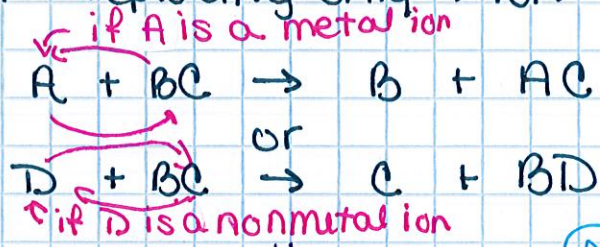 if A is a metal ion
A + BC → B + AC
or
D + BC → C + BD
if D is a nonmetal ion